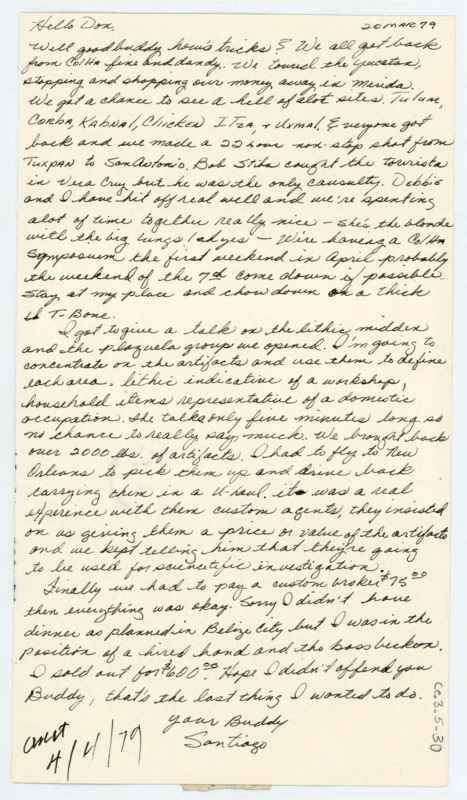 Hello Don,
20 MAR 79
Well good buddy how's tricks? We all got back
from Colha fine and dandy. We toured the Yucatan,
stopping and shopping our money away in Merida.
We got a chance to see a hell of alot sites. Tulum,
COBBA, KABNAl, Chicken ITza, + Uxmal. Everyone got
back and we made a 22 hour non stop shot from
Tuxpan to San Antonio. Bob Stita cought the tourista
in Vera Cruz but he was the only causulty. Debbie
and I have hit off real well and we're spenting
alot of time together really nice - She's the blonde
with the big lungs! ah yes - We're having a Colha
Symposium the first weekend in April probably
the weekend of the 7th come down if possible
Stay at my place and chow down on a thick
T-Bone.
I got to give a talk on the lithic midden
and the plazuela group we opened. I'm going to
concentrate on the artifacts and use them to define
each area. lithic indicative of a workshop,
household items representative of a domestic
occupation. The talks only five minutes long so
no chance to really say much. We bought back
over 2000 lbs. of artifacts. I had to fly to New
Orleans to pick them up and drive back
carrying them in a U-Haul. it was a real
experience with them custom agents, they insisted
on us giving them a price or value of the artifacts
and we kept telling him that they're going
to be used for scientific investigation.
Finally we had to pay a custom broker $75.00
then everything was okay. Sorry I didn't have
dinner as planned in Belize City but I was in the
position of a hired hand and the boss beckon.
I sold out for $600.00. Hope I didn't offend you
Buddy, that's the last thing I wanted to do.
Your Buddy
Santiago
4/4/79
CC3.5-30